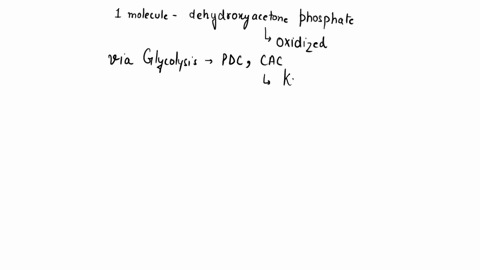 1 molecule - dehydroxyacetone phosphate
↳ oxidized
via Glycolysis → PDC, CAC
↳ K